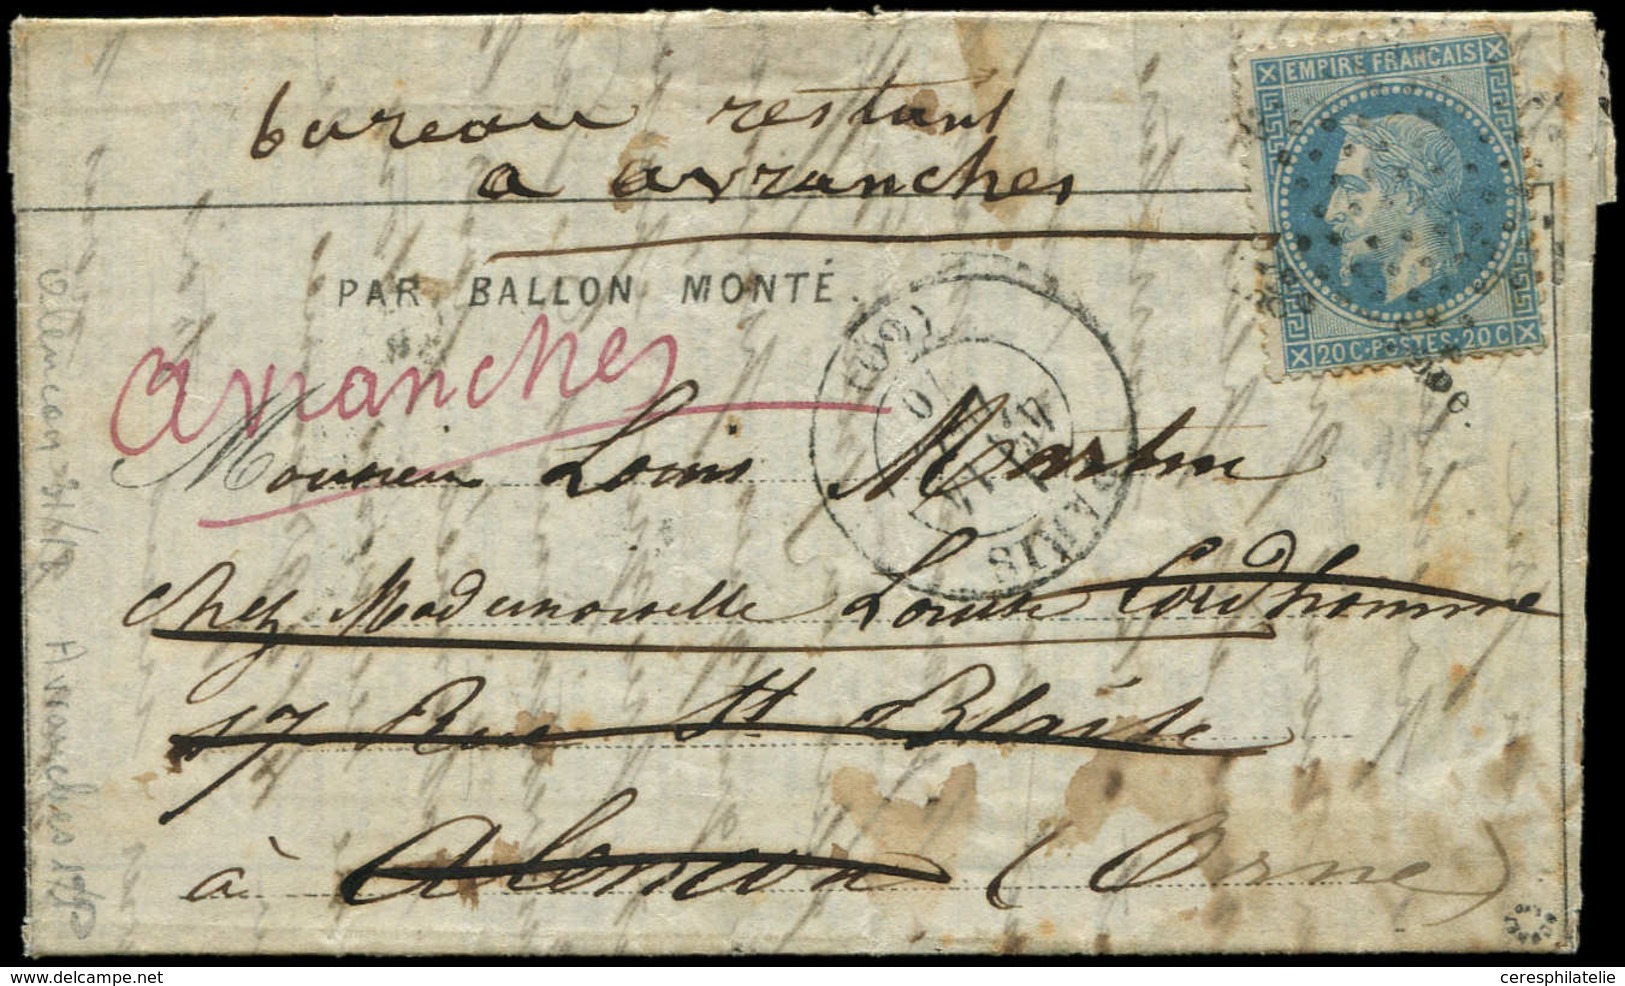 bureau restant
a avranches
EMPIRE FRANÇAIS
20 C · POSTES · 20 C
PAR BALLON MONTÉ.
avranches
PARIS (60)
Monsieur Louis Martin
chez Mademoiselle Louise Cordhomme
17 Rue St Blaise
à Alencon (Orne)
Alencon 31/12 Avranches 1
ceresphilatelie